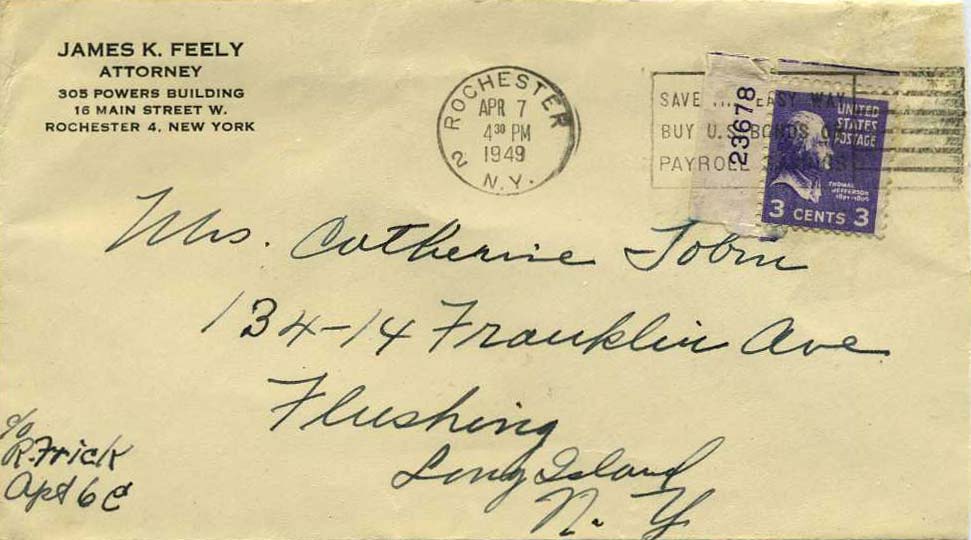 JAMES K. FEELY
ATTORNEY
305 POWERS BUILDING
16 MAIN STREET W.
ROCHESTER 4, NEW YORK
ROCHESTER
APR 7
4 30 PM
1949
2 N.Y.
SAVE EASY WAY
BUY U.S. BONDS
PAYROLL SAVINGS
23678
UNITED
STATES
POSTAGE
THOMAS
JEFFERSON
3 CENTS 3
Mrs. Catherine Tobin
134-14 Franklin Ave
Flushing
Long Island
N. Y.
c/o
R. Frick
Apt 6C